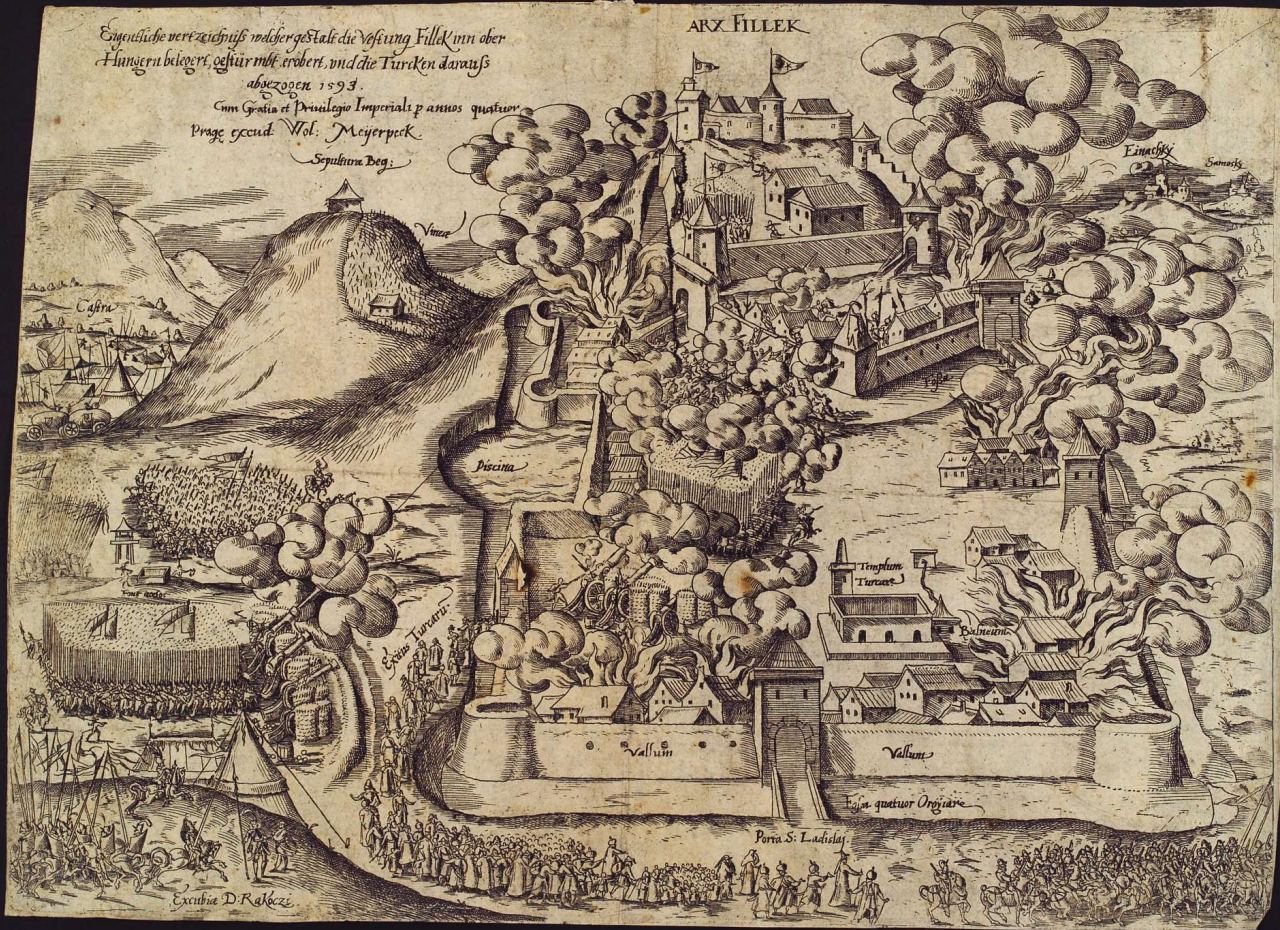 ARX FILLEK
Eigentliche verzeichniß welcher gestalt die Vestung Fillek inn ober
Hungern belegert, gestürmbt, eröbert, vnd die Turcken darauß
abgezogen 1593.
Cum Gratia et Privilegio Imperiali p annos quatuor
Pragę excud: Wol: Meÿerpeck
Sepultura Beg:
Vineæ
Einachky
Samosky
Castra
Piscina
Templum
Turcarū
Balneum
Exitus Turcarū
Vallum
Vallum
quatuor
Porta S: Ladislaj
Excubiæ D. Rakoczi